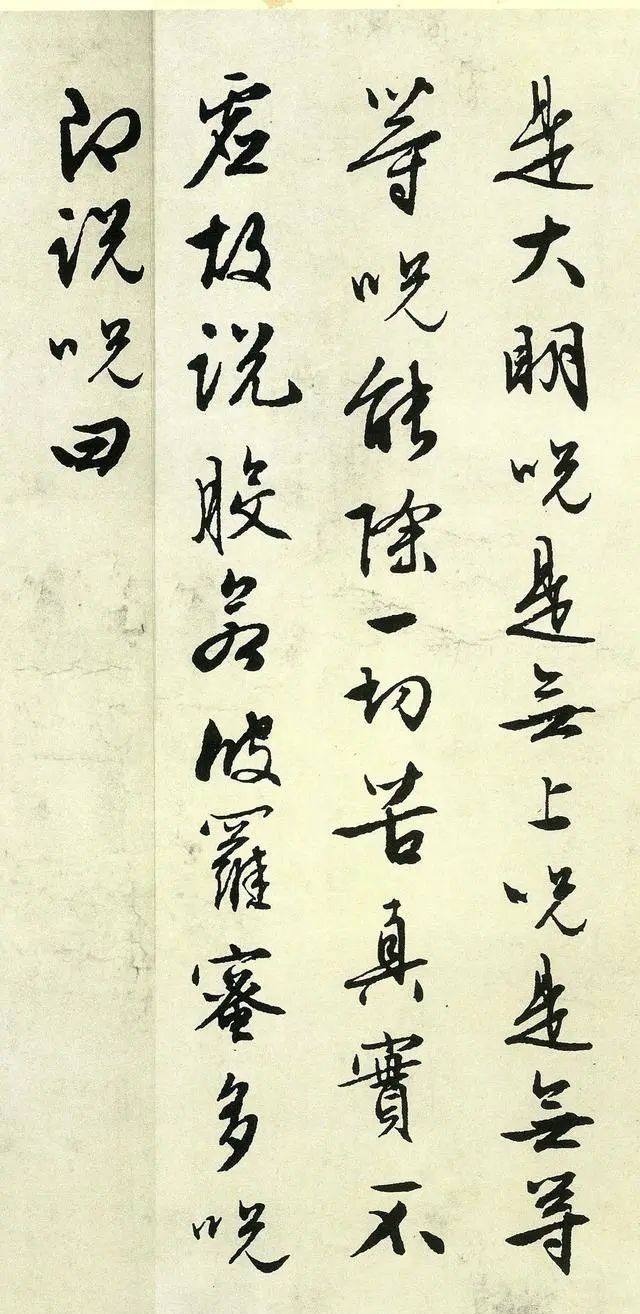 是大明呪是無上呪是無等
等呪能除一切苦真實不
虛故說般若波羅蜜多呪
即說呪曰